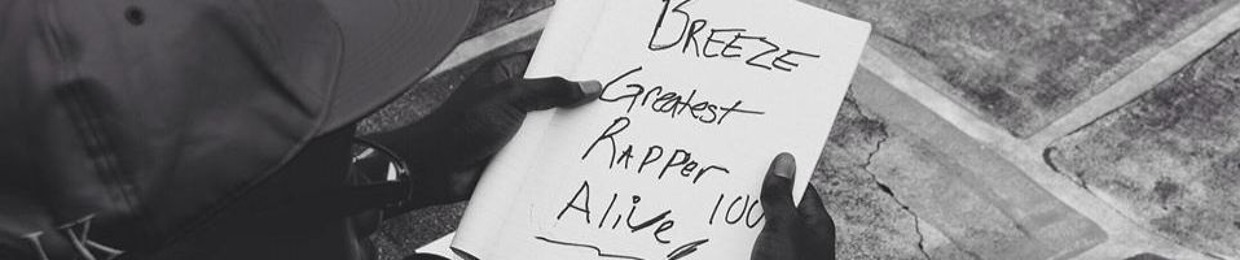 BREEZE
Greatest
RAPPer
Alive 100